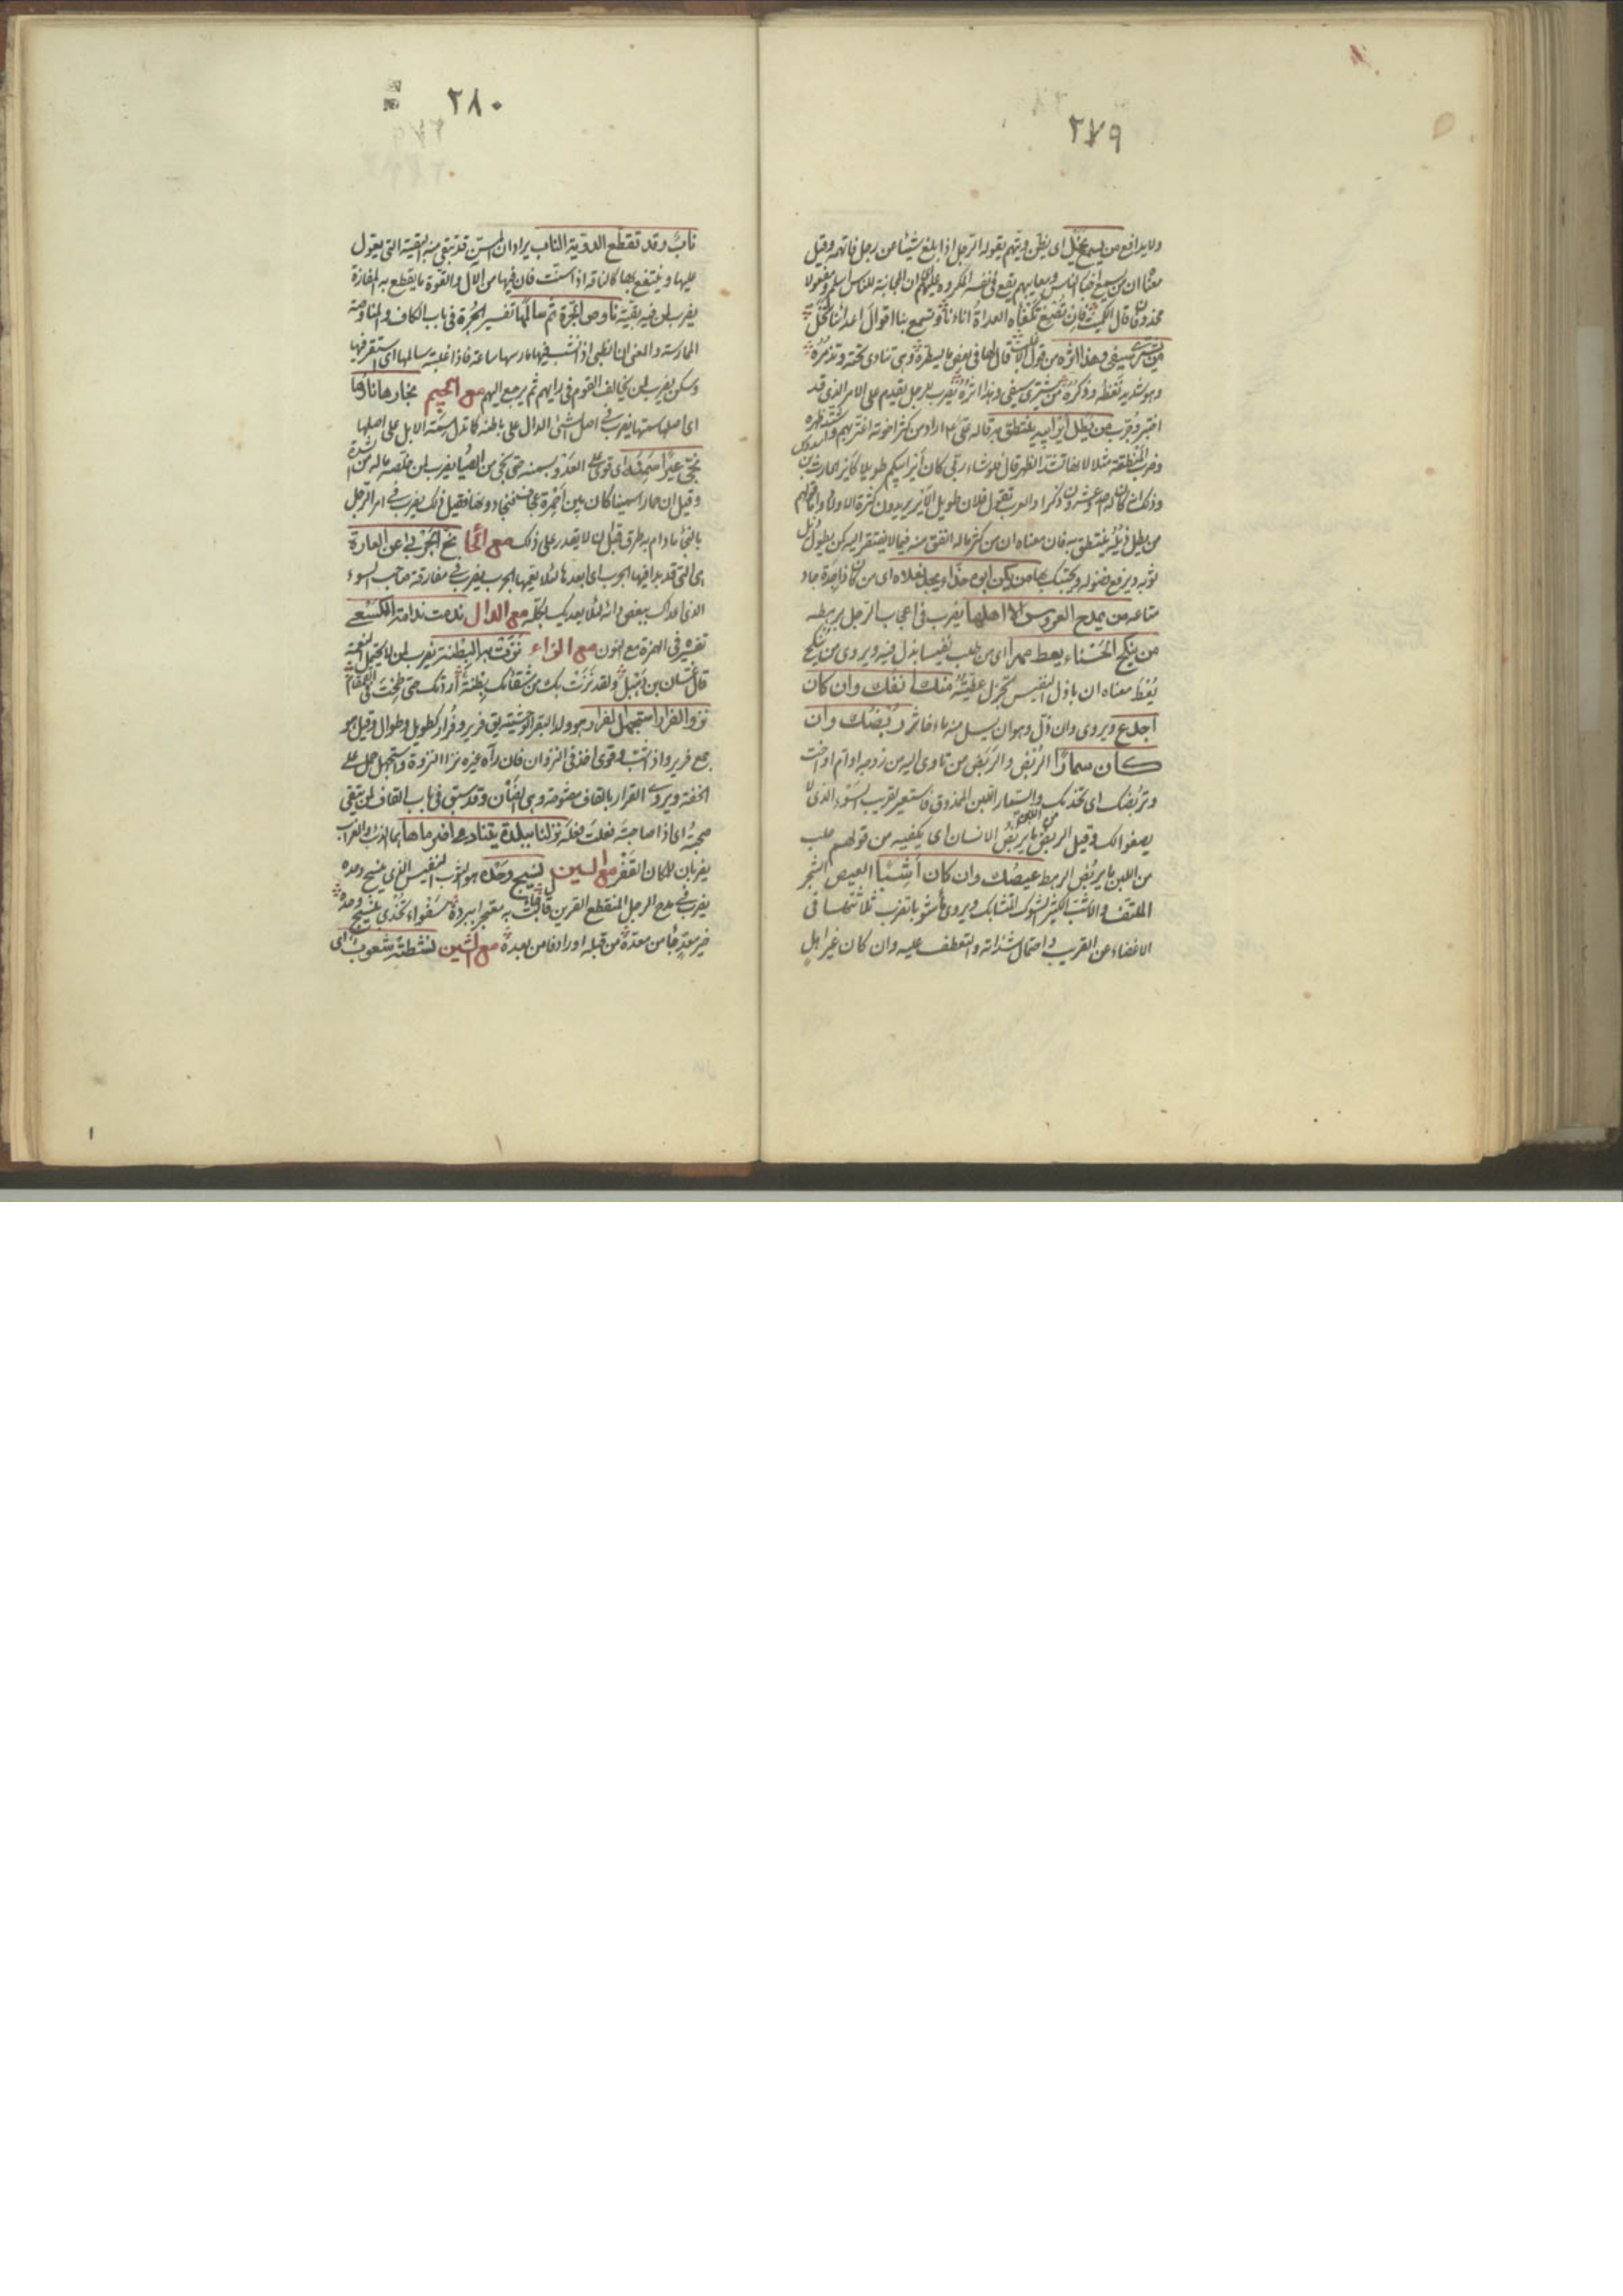 ٢٧٩
ولا يدافع من يسمع يخل اى يظن ويتهم يقوله الرجل اذا بلغ شيئا من رجل فاتهمه وقيل
معناه ان من يسمع اخبار الناس ومعايبهم يقع فى نفسه المكروه عليهم اى ان المجانبة للناس اسلم ومفعولا
محذوفان قال الكميت فان تصغ تكفأه العداة اناءنا وتسمع بنا اقوال اعدائنا تخل
من يشترى سيفى وهذا اثره من قول قال
وهو شديد من يشترى سيفى وهذا اثره يضرب للرجل يقدم على الامر الذى قد
اختبر وجرب من يطل اير ابيه ينتطق به قاله على اراد من كثر اخوته اشتد ظهره
وضرب المنطقة مثلا لانها تشد الظهر قال فلو شاء ربى كان اير ابيكم طويلا كاير الحارث بن سدوس
وذلك انه كان له احد وعشرون ذكرا والعرب تقول فلان طويل الاير يريدون كثرة الاولاد
من يطل ذيله ينتطق به فان معناه ان من كثر ماله انفق منه فيما لا يفتقر اليه كمن يطول ذيل
ثوبه ويرفع فضوله من يكن ابوه حذاء يجد نعلاه اى من كان ذا جدة جاد
متاعه من يمدح العروس الا اهلها يضرب فى اعجاب الرجل برهطه
من ينكح الحسناء يعط مهرا اى من طلب نفيسا بذل فيه ويروى من ينكح
يعط معناه ان باذل النفيس تجزل عطيته منك انفك وان كان
اجدع ويروى وان ذن وهو ان يسيل منه ماء خاثر ربضك وان
كان سمارا الربض والربض من تاوى اليه من زوجه او ام او اخت
وتربضك اى تخدمك والسمار اللبن الممذوق فاستعير لقريب السوء الذى لا
يصفو لك وقيل الربض من اللبن ما يربض الانسان اى يكفيه من قولهم حلب
من اللبن ما يربض الرهط عيصك وان كان اشبا العيص الشجر
الملتف والاشب الكثير الشوك المتشابك ويروى يضرب ثلاثتها فى
الاغضاء عن القريب واحتمال شذاته والتعطف عليه وان كان غير اهل
٢٨٠
ناب وقد تقطع الدوية الناب يراد ان المسن قد تبقى منه البقية التى يعول
عليها وينتفع بها كالناقة اذا اسنت فان فيها من الال والقوة ما يقطع به المفازة
يضرب لمن فيه بقية ناوص الجرة ثم سالمها تفسير الجرة فى باب الكاف والمناوصة
الممارسة والمعنى ان الظبى اذا نشب فيها مارسها ساعة فاذا غلبته سالمها اى استقر فيها
وسكن يضرب لمن يخالف القوم فى رايهم ثم يرجع اليهم مع الجيم نجارها نارها
اى اصلها سمتها يضرب فى اصل الشئ الدال على باطنه كما تدل سمة الابل على اصلها
نجى عيرا سمنه اى قوى على العدو بسمنه حتى نجى من الصياد يضرب لمن خلصه ماله من شدة
وقيل ان حمارا سمينا كان بين احمرة عجاف فنجا دونها فقيل ذلك يضرب فى امر الرجل
بالنجاء ما دام به طرق قبل ان لا يقدر على ذلك مع الحا نح الجربى عن العارة
هى التى قد بدا فيها الجرب اى ابعدها لئلا يعمها الجرب يضرب فى مفارقة صاحب السوء
مع الدال ندمت ندامة الكسعى
تفسيره فى الهمزة مع النون مع الزاء نزت به البطنة يضرب لمن لا يحتمل النعمة
قال غسان بن ذهيل ولقد نزت بك من شقائك بطنة اردتك حتى طحت فى القمقام
نزو الفرار استجهل الفرار هو ولد البقر الوحشية يق فرير وفرار كطويل وطوال وقيل هو
جمع فرير واذا شب وقوى اخذ فى النزوان فان رآه غيره نزا النزوة واستجهل حمل على
الخفة ويروى القرار بالقاف مضمومة وهى الضأن وقد سبق فى باب القاف لمن تتقى
صحبته اى اذا صاحبته فعلت فعله نزلنا ببلدة يتنادى اصرماها هما الذئب والغراب
يضربان للمكان القفر مع السين نسيج وحده هو الثوب النفيس الذى ينسج وحده
يضرب فى مدح الرجل المنقطع القرين قال جاءت به معتجرا ببرده سفواء تخدى بنسيج وحده
خير معد من قبله او رادفا من بعده مع الشين نشطته شعوب اى